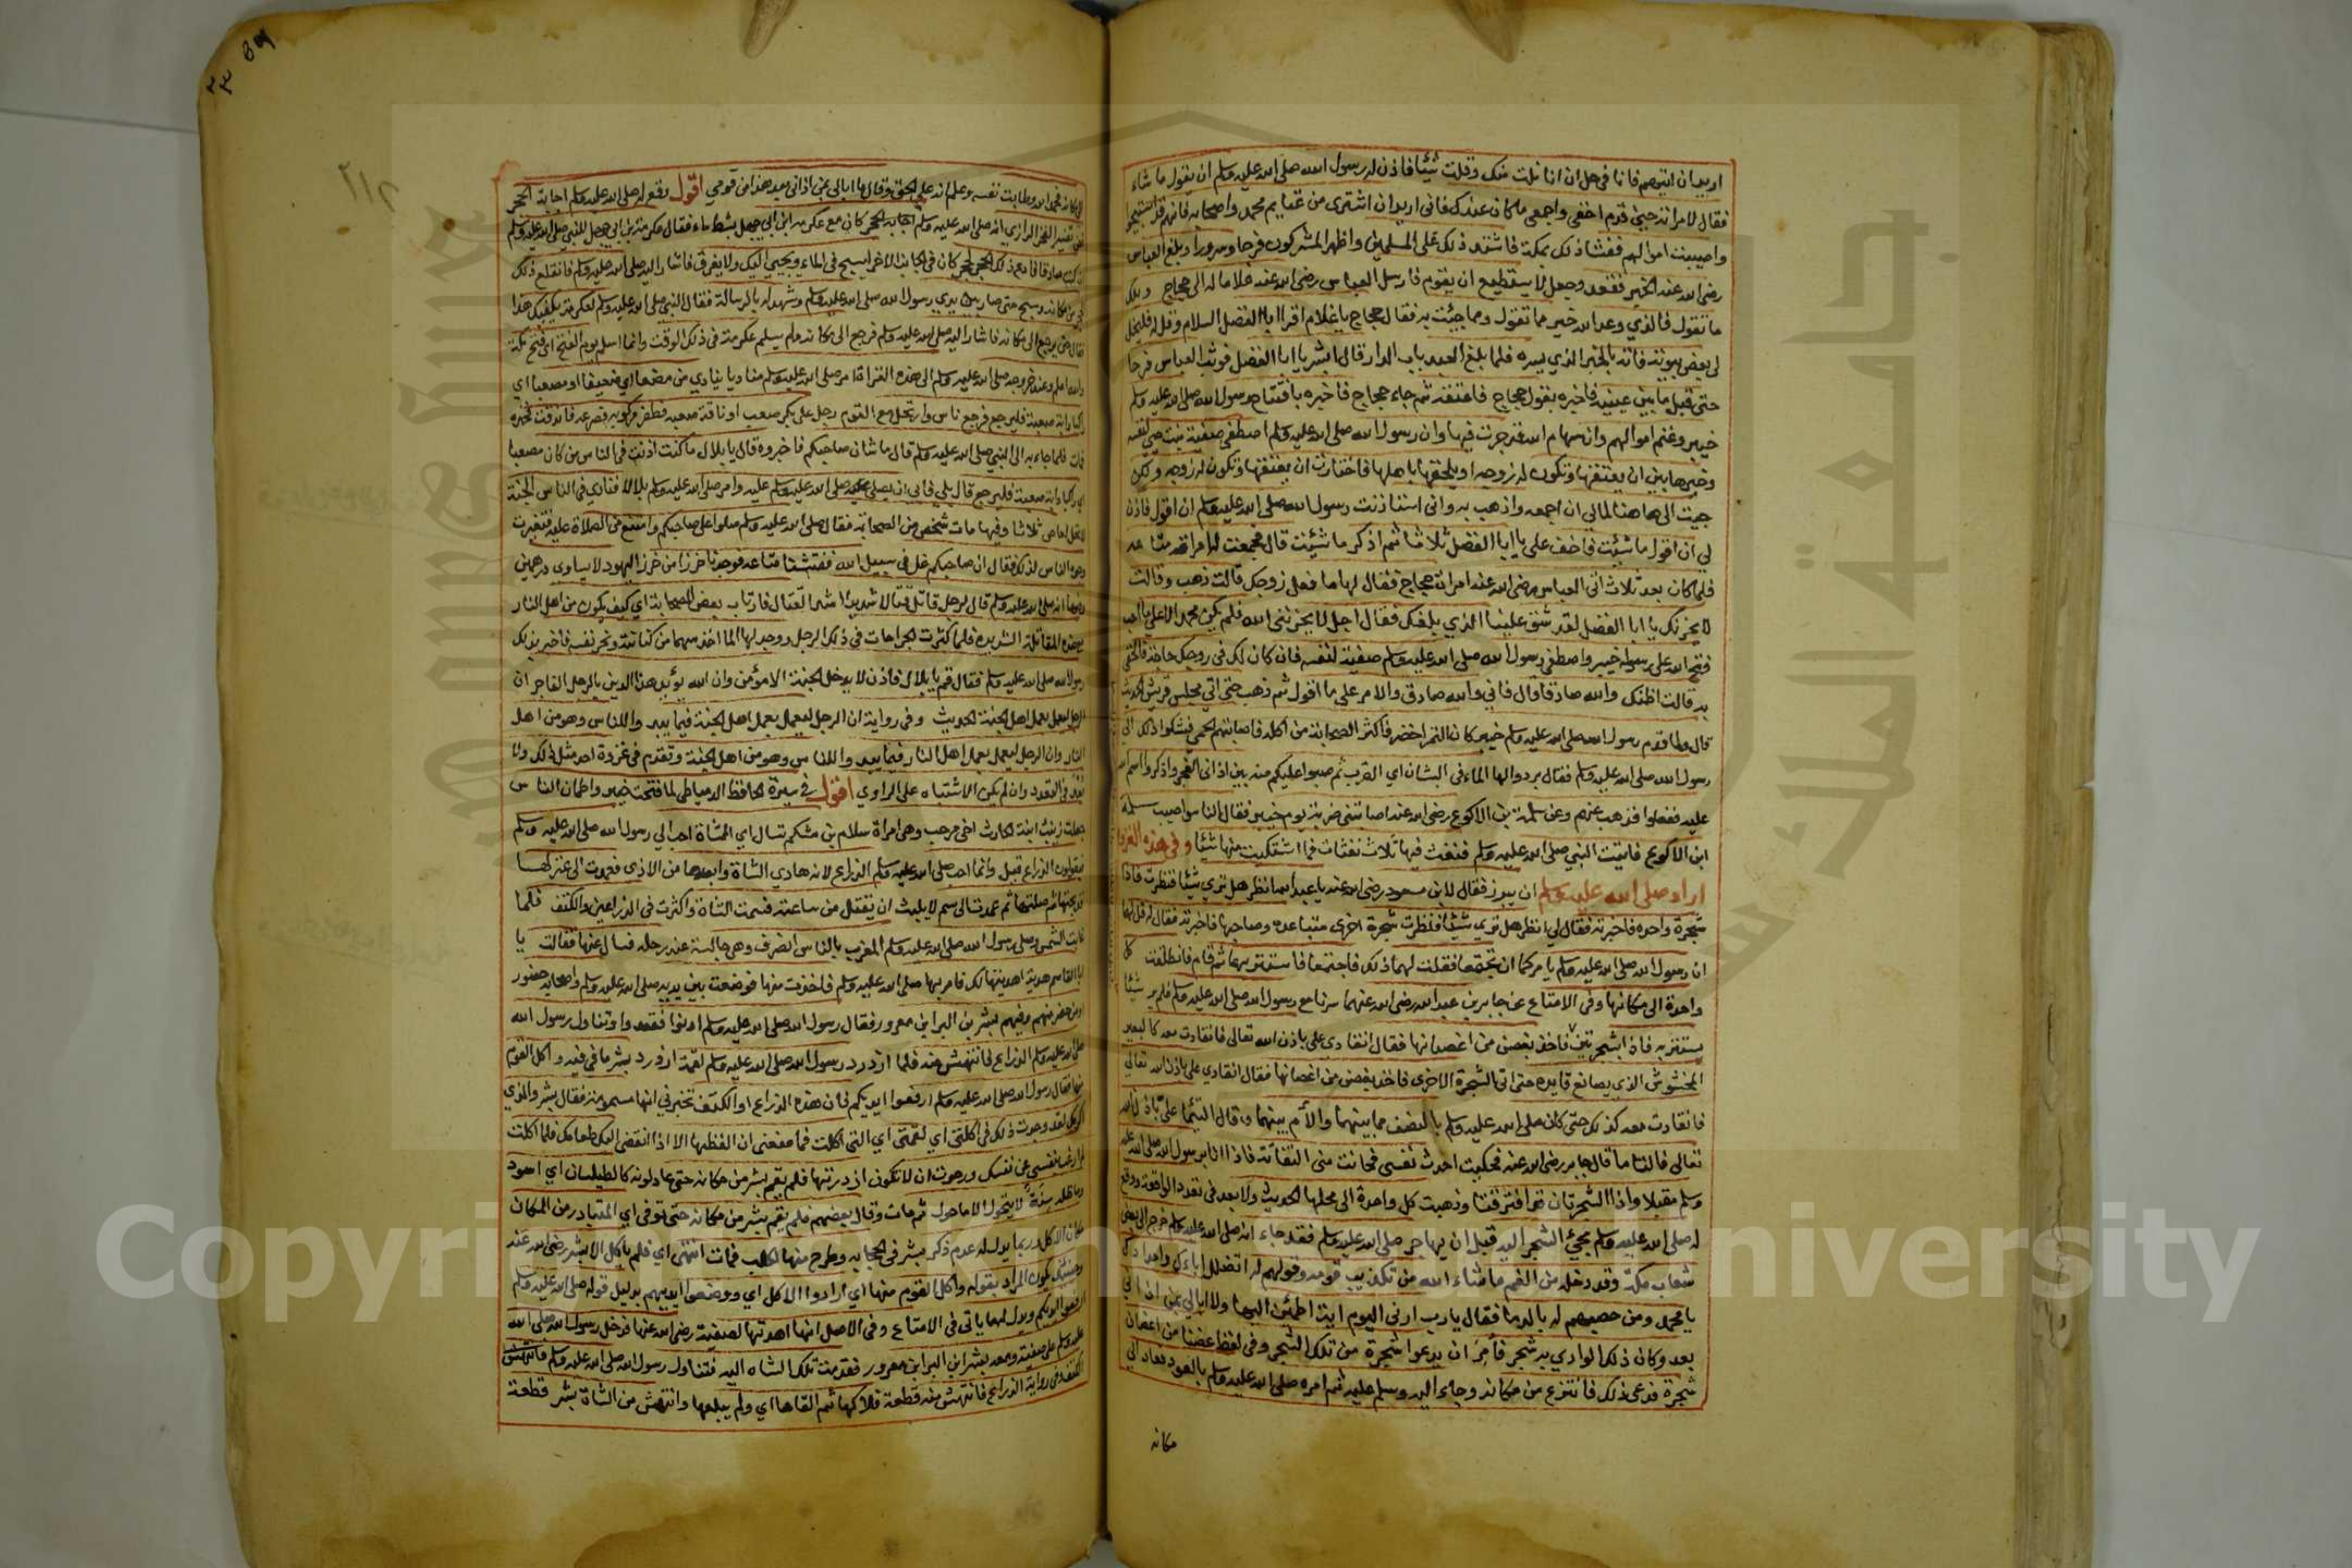 اريد ان اتيهم فانا في حل ان انا نلت منك وقلت شيئا فاذن له رسول الله صلى الله عليه وسلم ان يقول ما شاء
فقال لامراته حين قدم اخفي واجمعي ما كان عندك فاني اريد ان اشترى من غنايم محمد واصحابه فانهم قد استبيحوا
واصيبت اموالهم ففشا ذلك بمكة فاشتد ذلك على المسلمين واظهر المشركون فرحا وسرورا وبلغ العباس
رضى الله عنه الخبر فقعد وجعل لا يستطيع ان يقوم فارسل العباس رضى الله عنه غلاما له الى حجاج ويلك
ما تقول فالذي وعد الله خير مما تقول ومما جيئت به فقال حجاج يا غلام اقرا ابا الفضل السلام وقل له فليخل
لى بعض بيوته فاته بالخبر الذي يسره فلما بلغ العبد باب الدار قال ابشر يا ابا الفضل فوثب العباس فرحا
حتى قبل ما بين عينيه فاخبره بقول حجاج فاعتقه ثم جاء حجاج فاخبره بافتتاح رسول الله صلى الله عليه وسلم
خيبر وغنم اموالهم وان سهام الله قد جرت فيها وان رسول الله صلى الله عليه وسلم اصطفى صفية بنت حيي لنفسه
وخيرها بين ان يعتقها وتكون له زوجه او يلحقها باهلها فاختارت ان يعتقها وتكون له زوجه ولكن
جيت الى هاهنا لمالي ان اجمعه واذهب به واني استاذنت رسول الله صلى الله عليه وسلم ان اقول فاذن
لي ان اقول ما شيئت فاخف علي يا ابا الفضل ثلاثا ثم اذكر ما شيئت قال فجمعت له امراته متاعه
فلما كان بعد ثلاث اتى العباس رضى الله عنه امراة حجاج فقال لها ما فعل زوجك قالت ذهب وقالت
لا يحزنك يا ابا الفضل لقد شق علينا الذي بلغك فقال اجل لا يحزنني الله فلم يكن بحمد الله الا ما احب
فتح الله على رسوله خيبر واصطفى رسول الله صلى الله عليه وسلم صفية لنفسه فان كان لك في زوجك حاجة فالحقي
به قالت اظنك والله صادقا قال فاني والله صادق والامر على ما اقول ثم ذهب حتى اتي مجلس قريش الحديث
قال ولما قدم رسول الله صلى الله عليه وسلم خيبر كان التمر اخضر فاكثر الصحابة من اكله فاصابتهم الحمى فشكوا ذلك الي
رسول الله صلى الله عليه وسلم فقال بردوا لها الماء في الشنان اي القرب ثم صبوا عليكم منه بين اذاني الفجر واذكروا اسم الله
عليه ففعلوا فذهب عنهم وعن سلمة بن الاكوع رضى الله عنه اصابتني ضربة يوم خيبر فقال الناس اصيب سلمة
ابن الاكوع فاتيت النبي صلى الله عليه وسلم فنفث فيها ثلاث نفثات فما اشتكيت منها شيئا وفي هذه الغزوة
اراد صلى الله عليه وسلم ان يبرز فقال لابن مسعود رضى الله عنه يا عبد الله انظر هل تري شيئا فنظرت فاذا
شجرة واحدة فاخبرته فقال لي انظر هل تري شيئا فنظرت شجرة اخرى متباعدة من صاحبها فاخبرته فقال قل لهما
ان رسول الله صلى الله عليه وسلم يامركما ان تجتمعا فقلت لهما ذلك فاجتمعا فاستتر بهما ثم قام فانطلقت كل
واحدة الى مكانها وفى الامتاع عن جابر بن عبد الله رضى الله عنهما سرنا مع رسول الله صلى الله عليه وسلم فلم ير شيئا
يستتر به فاذا بشجرتين فاخذ بغصن من اغصانها فقال انقادي علي باذن الله تعالى فانقادت معه كالبعير
المخشوش الذي يصانع قايده حتى اتى الشجرة الاخرى فاخذ بغصن من اغصانها فقال انقادي علي باذن الله تعالي
فانقادت معه كذلك حتى كان صلى الله عليه وسلم بالنصف مما بينهما والأم بينهما وقال التئما على باذن الله
تعالى فالتئما قال جابر رضى الله عنه فجلست احدث نفسي فحانت مني التفاتة فاذا انا برسول الله صلى الله عليه
وسلم مقبلا واذا الشجرتان قد افترقتا وذهبت كل واحدة الى محلها الحديث ولا بعد في تعدد الواقعة ووقع
له صلى الله عليه وسلم مجئ الشجر اليه قبل ان يهاجر صلى الله عليه وسلم فقد جاء انه صلى الله عليه وسلم خرج الى بعض
شعاب مكة وقد دخله من الغم ما شاء الله من تكذيب قومه وقولهم له اتضلل اباءك واجدادك
يا محمد ومن حصبهم له بالدما فقال يا رب ارني اليوم اية اطمئن اليها ولا ابالي بمن اذاني
بعد وكان ذلك الوادي به شجر فأمر ان يدعوا شجرة من تلك الشجر وفى لفظ غصنا من اغصان
شجرة فدعى ذلك فانتزع من مكانه وجاء اليه وسلم عليه ثم امره صلى الله عليه وسلم بالعود فعاد الي
مكانه
٢١٢
الى مكانه فحمد الله وطابت نفسه وعلم انه على الحق وقال ما ابالى بمن اذاني بعد هذا من قومي اقول وقع له صلى الله عليه وسلم اجابة الحجر
ففى تفسير الفخر الرازي انه صلى الله عليه وسلم اجابه الحجر كان مع عكرمة ابن ابي جهل بشط ماء فقال عكرمة بن ابي جهل للنبي صلى الله عليه وسلم
ان كنت صادقا فادع ذلك الحجر لحجر كان في الجانب الاخر يسبح في الماء ويجيي اليك ولا يغرق فاشار اليه صلى الله عليه وسلم فانقلع ذلك
الحجر من مكانه وسبح حتى صار بين يدي رسول الله صلى الله عليه وسلم وشهد له بالرسالة فقال النبي صلى الله عليه وسلم لعكرمة يكفيك هذا
فقال حتى يرجع الى مكانه فاشار اليه صلى الله عليه وسلم فرجع الى مكانه ولم يسلم عكرمة في ذلك الوقت وانما اسلم يوم الفتح اي فتح مكة
والله اعلم وعند خروجه صلى الله عليه وسلم الى هذه الغزاة امر صلى الله عليه وسلم مناديا ينادي من مضعفا اي ضعيفا او مصعبا اي
راكبا دابة صعبة فليرجع فرجع ناس وارتحل مع القوم رجل على بكر صعب او ناقة صعبه فصرعه فاندقت فخذه
فمات فلما جاءوا به الى النبي صلى الله عليه وسلم قال ما شان صاحبكم فاخبروه قال يا بلال ما كنت اذنت في الناس من كان مصعبا
اي راكبا دابة صعبة فليرجع قال بلى فابى ان يصلى صلى الله عليه وسلم عليه وامر صلى الله عليه وسلم بلالا فنادى في الناس الجنة
لا تحل لعاص ثلاثا وفيها مات شخص من الصحابة فقال صلى الله عليه وسلم صلوا على صاحبكم وامتنع من الصلاة عليه فتغيرت
وجوه الناس لذلك فقال ان صاحبكم غل في سبيل الله ففتشنا متاعه فوجدنا خرزا من خرز اليهود لا يساوى درهمين
وفيها انه صلى الله عليه وسلم قال لرجل قاتل قتالا شديدا فارتاب بعض الصحابة اي كيف يكون من اهل النار
مع هذه المقاتلة الشديده فلما كثرت الجراحات في ذلك الرجل ووجد لها الما اخذ سهما من كنانته ونحر نفسه فاخبر بذلك
رسول الله صلى الله عليه وسلم فقال قم يا بلال فاذن لا يدخل الجنة الا مؤمن وان الله يؤيد هذا الدين بالرجل الفاجر ان
الرجل ليعمل بعمل اهل الجنة الحديث وفي رواية ان الرجل ليعمل بعمل اهل الجنة فيما يبدو للناس وهو من اهل
النار وان الرجل ليعمل بعمل اهل النار فيما يبدو للناس وهو من اهل الجنة وتقدم في غزوة احد مثل ذلك ولا
بعد في التعدد وان لم يكن الاشتباه على الراوي اقول في سيرة الحافظ الدمياطي لما فتحت خيبر واطمان الناس
جعلت زينب ابنة الحارث اخي مرحب وهى امراة سلام بن مشكم تسال اي الشاة احب الي رسول الله صلى الله عليه وسلم
فيقولون الذراع قيل وانما احب صلى الله عليه وسلم الذراع لانه هادي الشاة وابعدها من الاذي فعمدت الى عنز لها
فذبحتها ثم صلتها ثم عمدت الى سم لا يلبث ان يقتل من ساعته فسمت الشاة واكثرت في الذراعين والكتف فلما
غابت الشمس وصلى رسول الله صلى الله عليه وسلم المغرب بالناس انصرف وهى جالسة عند رحله فسال عنها فقالت يا
ابا القاسم هدية اهديتها لك فامر بها صلى الله عليه وسلم فاخذت منها فوضعت بين يديه صلى الله عليه وسلم واصحابه حضور
او من حضر منهم وفيهم بشر بن البرا ابن معرور فقال رسول الله صلى الله عليه وسلم ادنوا فقعدوا وتناول رسول الله
صلى الله عليه وسلم الذراع فانتهش منه فلما ازدرد رسول الله صلى الله عليه وسلم لقمة ازدرد بشر ما في فيه واكل القوم
منها فقال رسول الله صلى الله عليه وسلم ارفعوا ايديكم فان هذه الذراع او الكتف تخبرني انها مسمومة فقال بشر والذي
اكرمك لقد وجدت ذلك في اكلتي اي لقمتي اي التي اكلت فما منعني ان الفظها الا اذا انقض اليك طعامك فلما اكلت
لم ارغب بنفسي عن نفسك ورجوت ان لا تكون ازدردتها فلم يقم بشر من مكانه حتى عاد لونه كالطيلسان اي اسود
وماطله سنة لا يتحول الا ما حول ثم مات وقال بعضهم فلم يقم بشر من مكانه حتى توفى اي المتبادر من المكان
مكان الاكل وربما يدل له عدم ذكر بشر في الحجابه وطرح منها لكلب فمات انتهى اي فلم ياكل الا بشر رضى الله عنه
وحينئذ يكون المراد بقوله واكل القوم منها اي ارادوا الاكل اي ووضعوا ايديهم بدليل قوله صلى الله عليه وسلم
ارفعوا ايديكم ويدل لهما ياتى في الامتاع وفى الاصل انها اهدتها لصفية رضى الله عنها فدخل رسول الله صلى الله
عليه وسلم على صفية ومعه بشر ابن البرا ابن معرور فقدمت تلك الشاه اليه فتناول رسول الله صلى الله عليه وسلم فانتهش
الكتف وفى رواية الذراع فانتهش منه قطعة فلاكها ثم القاها اي ولم يبلعها وانتهش من الشاة بشر قطعة
Copyright © King Saud University
جامعة الملك سعود